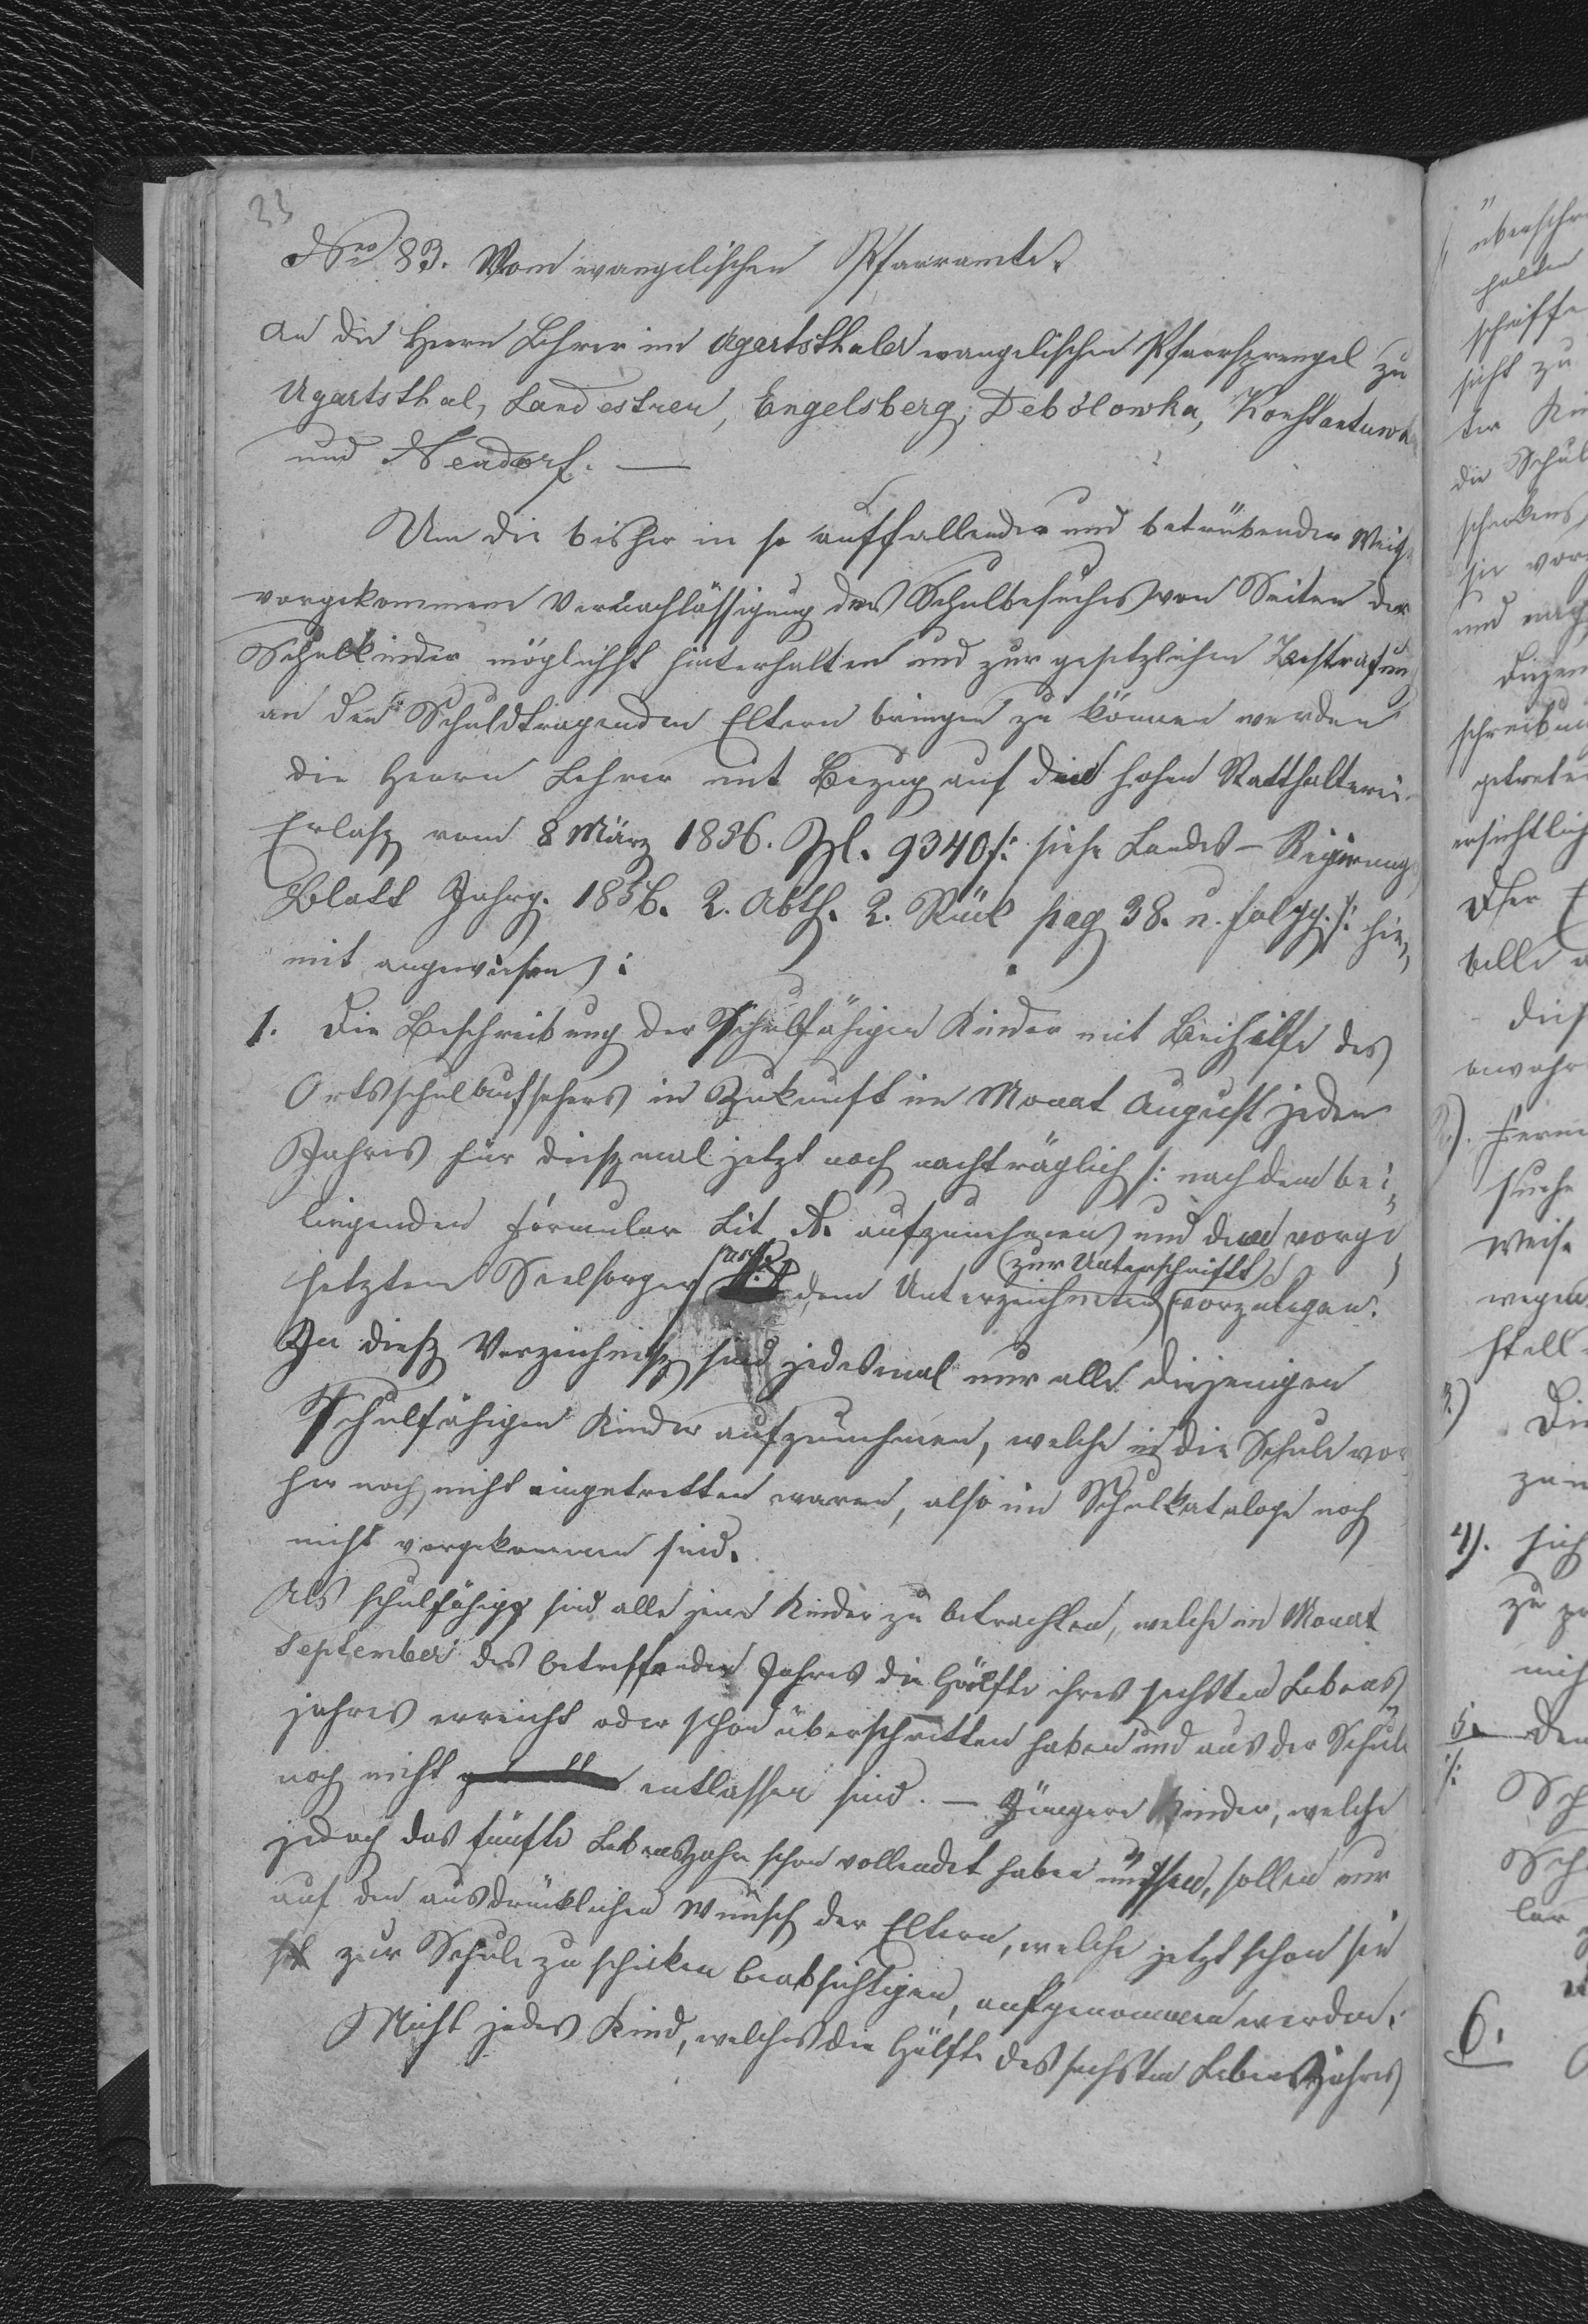 33
Nro 83. Vom evangelischen Pfarramte.
An die Herrn Lehrer im Ugartsthaler evangelischen Pfarrsprengel zu
Ugartsthal, Landestreu, Engelsberg, Debolowka, Konstantuwka
und Neudorf. —
Um die bisher in so auffallender und betrübender Weise
vorgekommene Vernachlässigung des Schulbesuches von Seiten der
Schulkinder möglichst hinterhalten und zur gesetzlichen Bestrafung
an den Schuldtragenden Eltern bringen zu können werden
die Herrn Lehrer mit Bezug auf den hohen Statthalterei-
Erlaß vom 8 März 1856. Zl. 9340 /: siehe Landes-Regierung
Blatt Jahrg. 1856. 2. Abth. 2. Stück pag 38. u. folgg. :/ hie-
mit angewiesen:
1. Die Beschreibung der Schulfähigen Kinder mit Beihilfe des
Ortsschulaufsehers in Zukunft im Monat August jeden
Jahres für dießmal jetzt noch nachträglich /: nach dem bei-
liegenden Formular Lit A. aufzunehmen und dem vorge
setzten Seelsorger dem Unterzeichneten (zur Unterschrift) vorzulegen.
In dieß Verzeichniß sind jedesmal nur alle diejenigen
Schulfähigen Kinder aufzunehmen, welche in die Schule vor
her noch nicht eingetretten waren, also im Schulkataloge noch
nicht vorgekommen sind.
Als schulfähig sind alle jene Kinder zu betrachten, welche im Monat
September des betreffenden Jahres die Hälfte ihres sechsten Lebens-
jahres erreicht oder schon überschritten haben und aus der Schule
noch nicht entlassen sind. — Jüngere Kinder, welche
jedoch das fünfte Lebensjahr schon vollendet haben müssen, sollen nur
auf den ausdrücklichen Wunsch der Eltern, welche jetzt schon sie
zur Schule zu schicken beabsichtigen, aufgenommen werden.
Nicht jedes Kind, welches die Hälfte des sechsten Lebensjahres
halten
schaffe
nicht zu
die Schul
sie vor
und
ersichtlich
Weise
wegen
stell
3.) Die
4). sich
zu
5. Den
6.